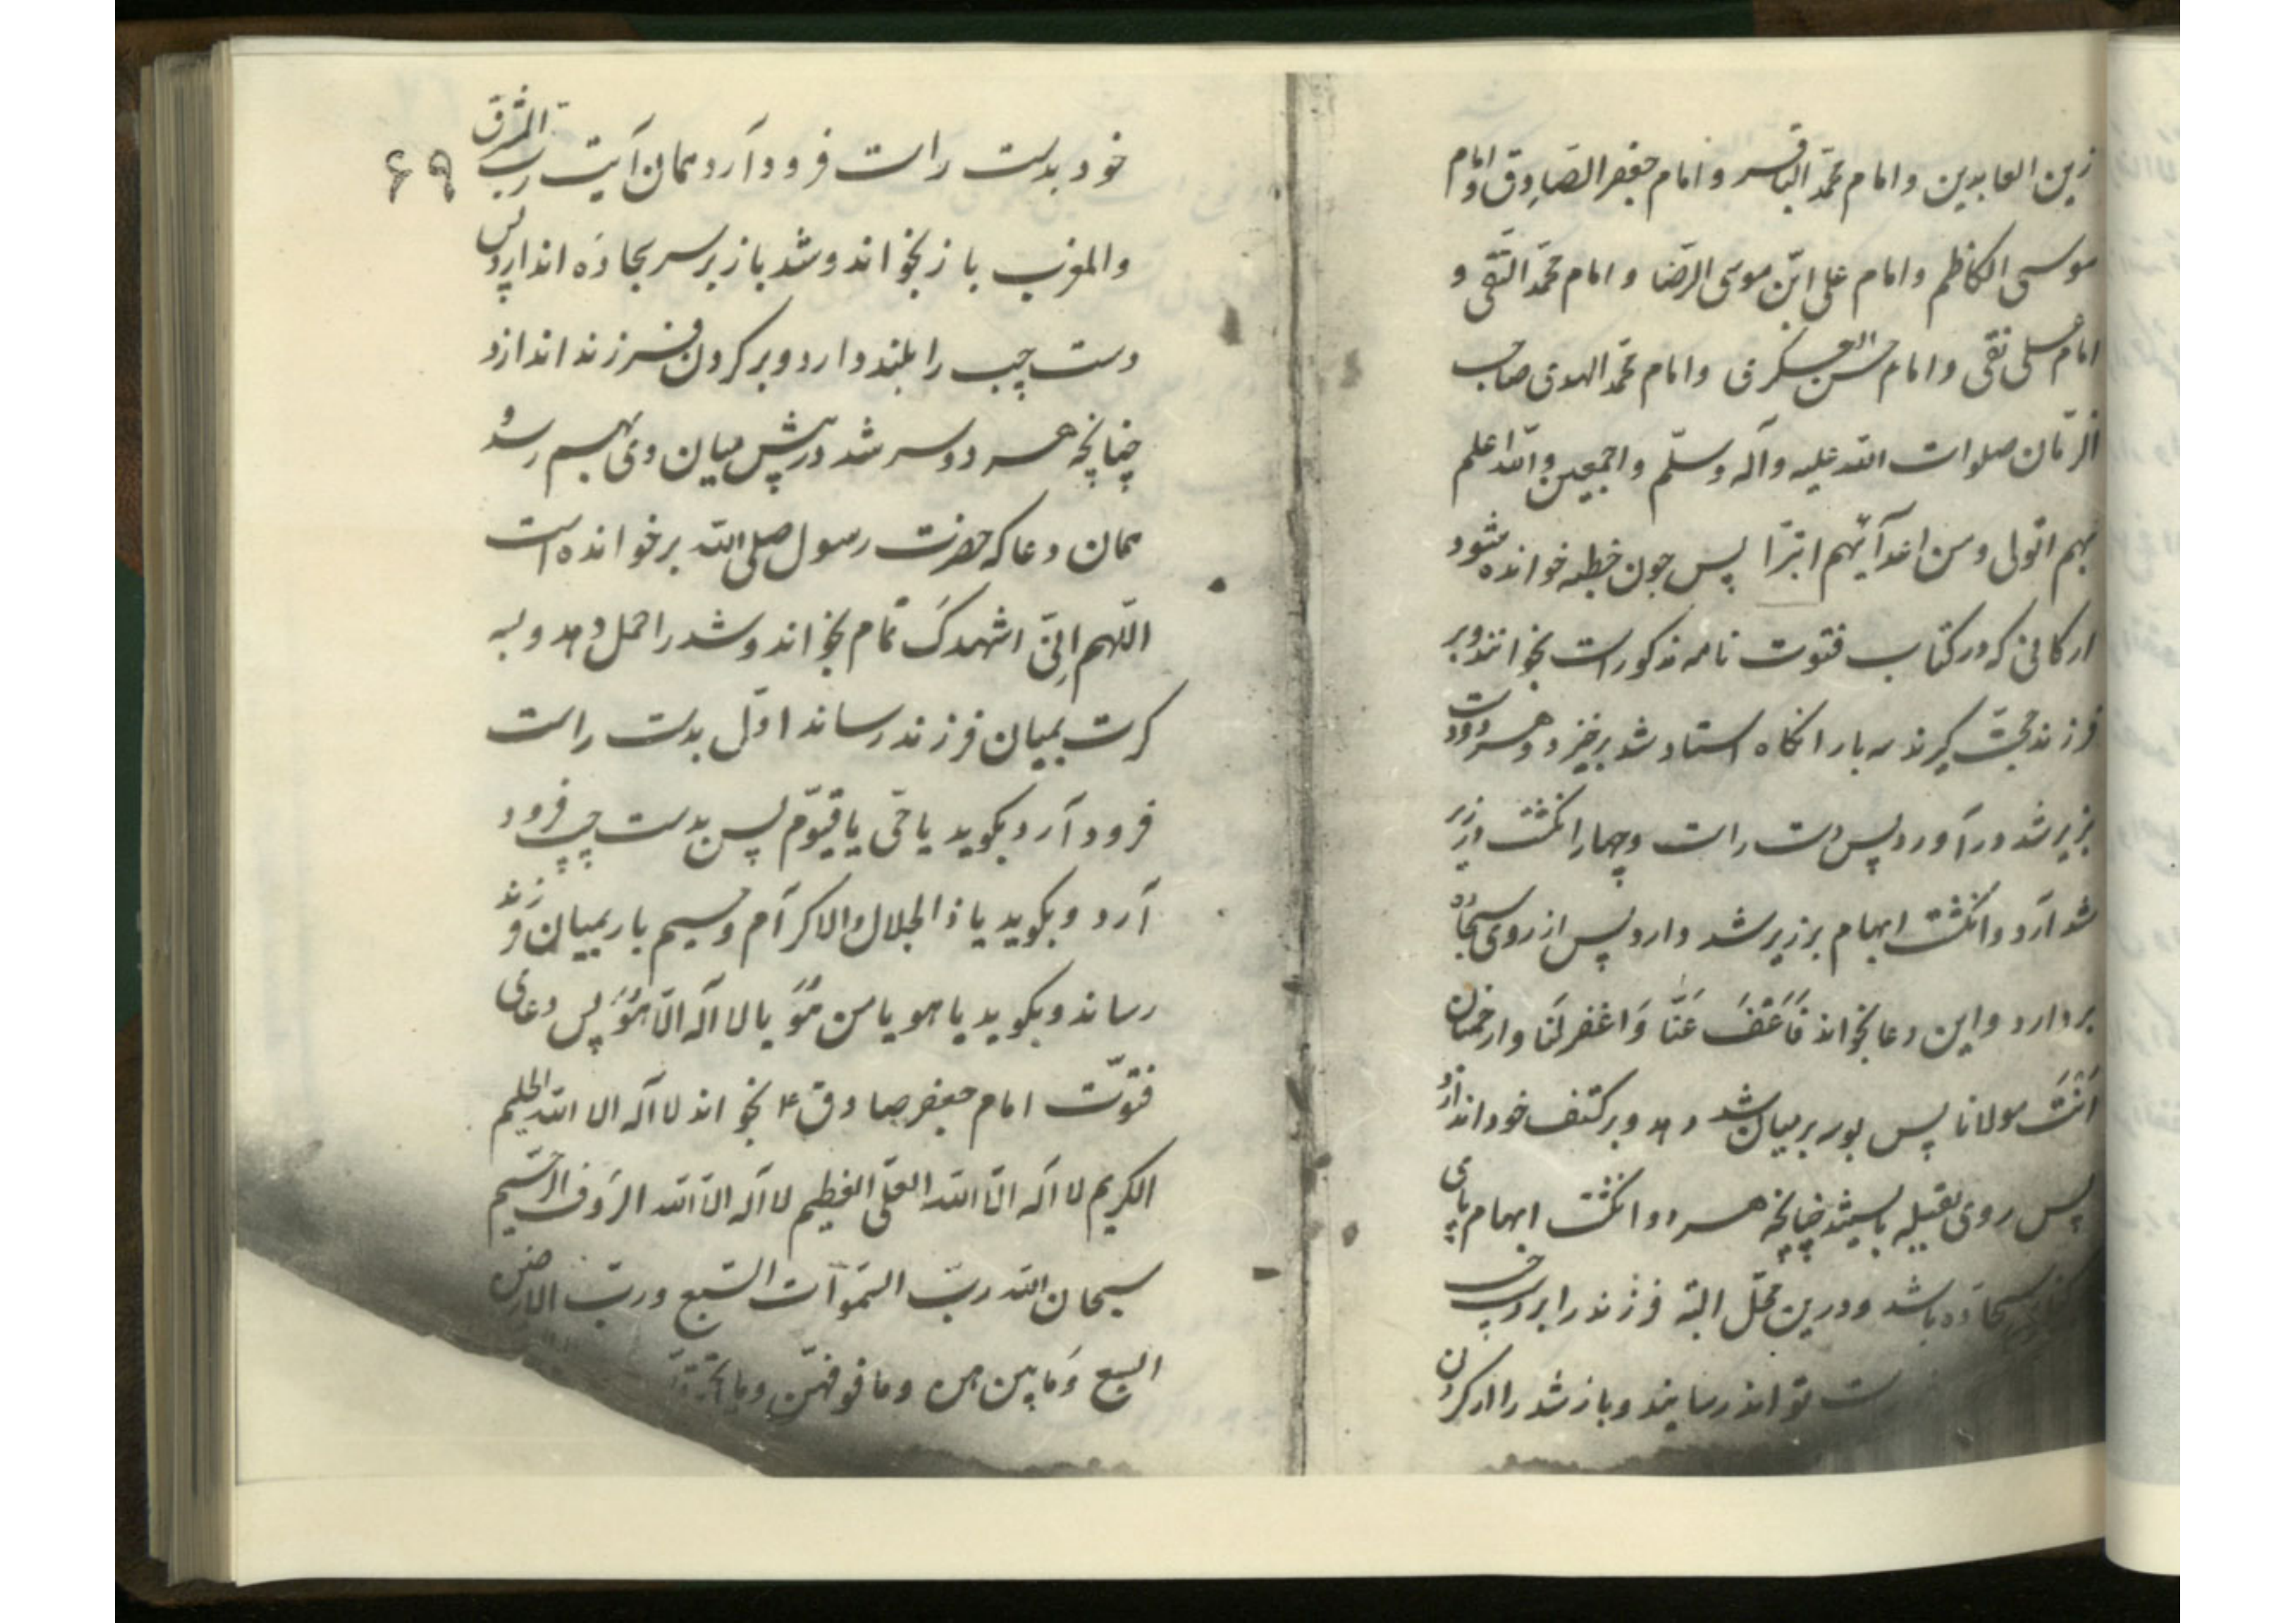 زین العابدین و امام محمّد الباقر و امام جعفر الصّادق و امام
موسی الکاظم و امام علی ابن موسی الرّضا و امام محمّد التّقی و
امام علی نقی و امام حسن العسکری و امام محمّد المهدی صاحب
الزّمان صلوات الله علیه و آله و سلّم و اجمعین و الله اعلم
بهم اتولی و من اعدآئهم ابترّا پس چون خطبه خوانده شود
ارکانی که در کتاب فتوت نامه مذکور است بخوانند و بر
فرزند حجّت گیرند سه بار انکاه استاد شد برخیزد و هر دو دست
بزیر شد در آورد پس دست راست و چهار انکشت از زیر
شد آرد و انکشت ابهام بر زیر شد دارد پس از روی سجاده
بردارد و این دعا بخواند فَاعَفَ عَنَّا وَ اغفر لَنَا و ارحمنا
اَنْتَ مولانا پس بوسه بر میان شد دهد و بر کتف خود اندازد
پس روی بقبیله بایستد چنانچه هر دو انکشت ابهام پای
سجاده باشد و درین محلّ البته فرزند را بر
ست تواند رسانیند و باز شد را از کردن
۶۹
خود بدست راست فرود آرد همان آیت رب المشرق
و المغرب باز بخواند و شد باز بر سر سجاده اندازد پس
دست چپ را بلند دارد و بر کردن فرزند اندازد
چنانچه هر دو سر شد در پیش میان وی بهم رسد و
همان دعا که حضرت رسول صلی الله بر خوانده است
اللّهم اِنّی اشهدکَ تمام بخواند و شد را حمل دهد و بسه
کرت بمیان فرزند رساند اوّل بدست راست
فرود آرد بکوید یا حَی یا قیوّم پس بدست چپ فرود
آرد و بکوید یا ذالجلال و الاکرآم و سیم بار بمیان فرزند
رساند و بکوید یا هو یا من هُوَ یا لا اله الّا هُوَ پس دعای
فتوّت امام جعفر صادق ع بخواند لا اله الا الله الحلیم
الکریم لا اله الّا الله العلّی العظیم لا اله الّا الله الرَوف الرّحیم
سبحان الله ربّ السّموات السّبع و ربّ الارضین
السبع و مَا بین هن و ما فوقهنّ و ما تحتهنّ